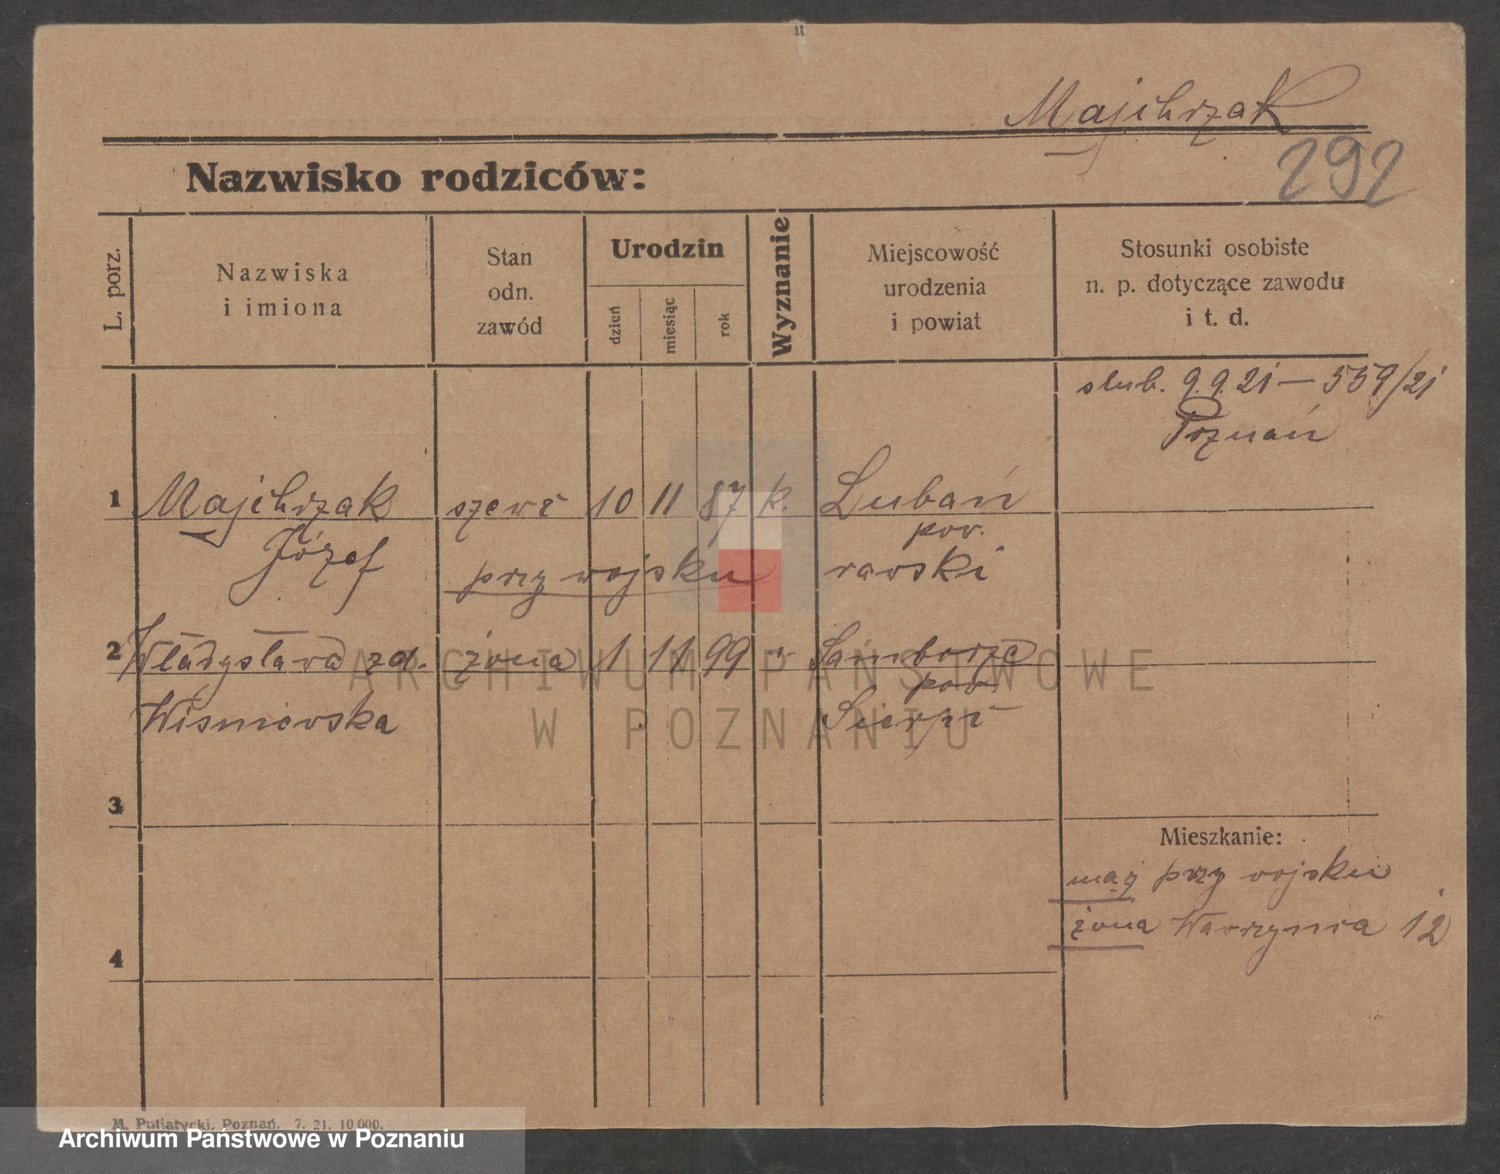 Majchrzak
292
Nazwisko rodziców:
L. porz.
Nazwiska
i imiona
Stan
odn.
zawód
Urodzin
dzień
miesiąc
rok
Wyznanie
Miejscowość
urodzenia
i powiat
Stosunki osobiste
n. p. dotyczące zawodu
i t. d.
slub. 9.9.21 — 559/21
Poznań
1 Majchrzak szewc 10 11 87 k. Lubań
Józef przy wojsku pow.
rawski
2 Władysława zd. żona 1 11 99 " Samborze
pow.
Wisniewska Sierpc
3
Mieszkanie:
mąż przy wojsku
żona Wawrzynia 12
4
ARCHIWUM PAŃSTWOWE
W POZNANIU
M. Putiatycki, Poznań. 7. 21. 10000.
Archiwum Państwowe w Poznaniu